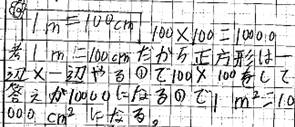 1m=100cm 100×100=10000
考 1m=100cmだから正方形は一
辺×一辺やるので100×100をして
答えが10000になるので1m²=10
000cm²になる。